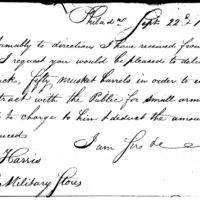 Philada Sept 22d 1
ormably to directions I have received from
I request you would be pleased to deliv
ick, fifty musket barrels in order to e
tract with the Public for Small arm
to charge to him & deduct the amou
uced
I am Sir &c
Harris
Military Stores